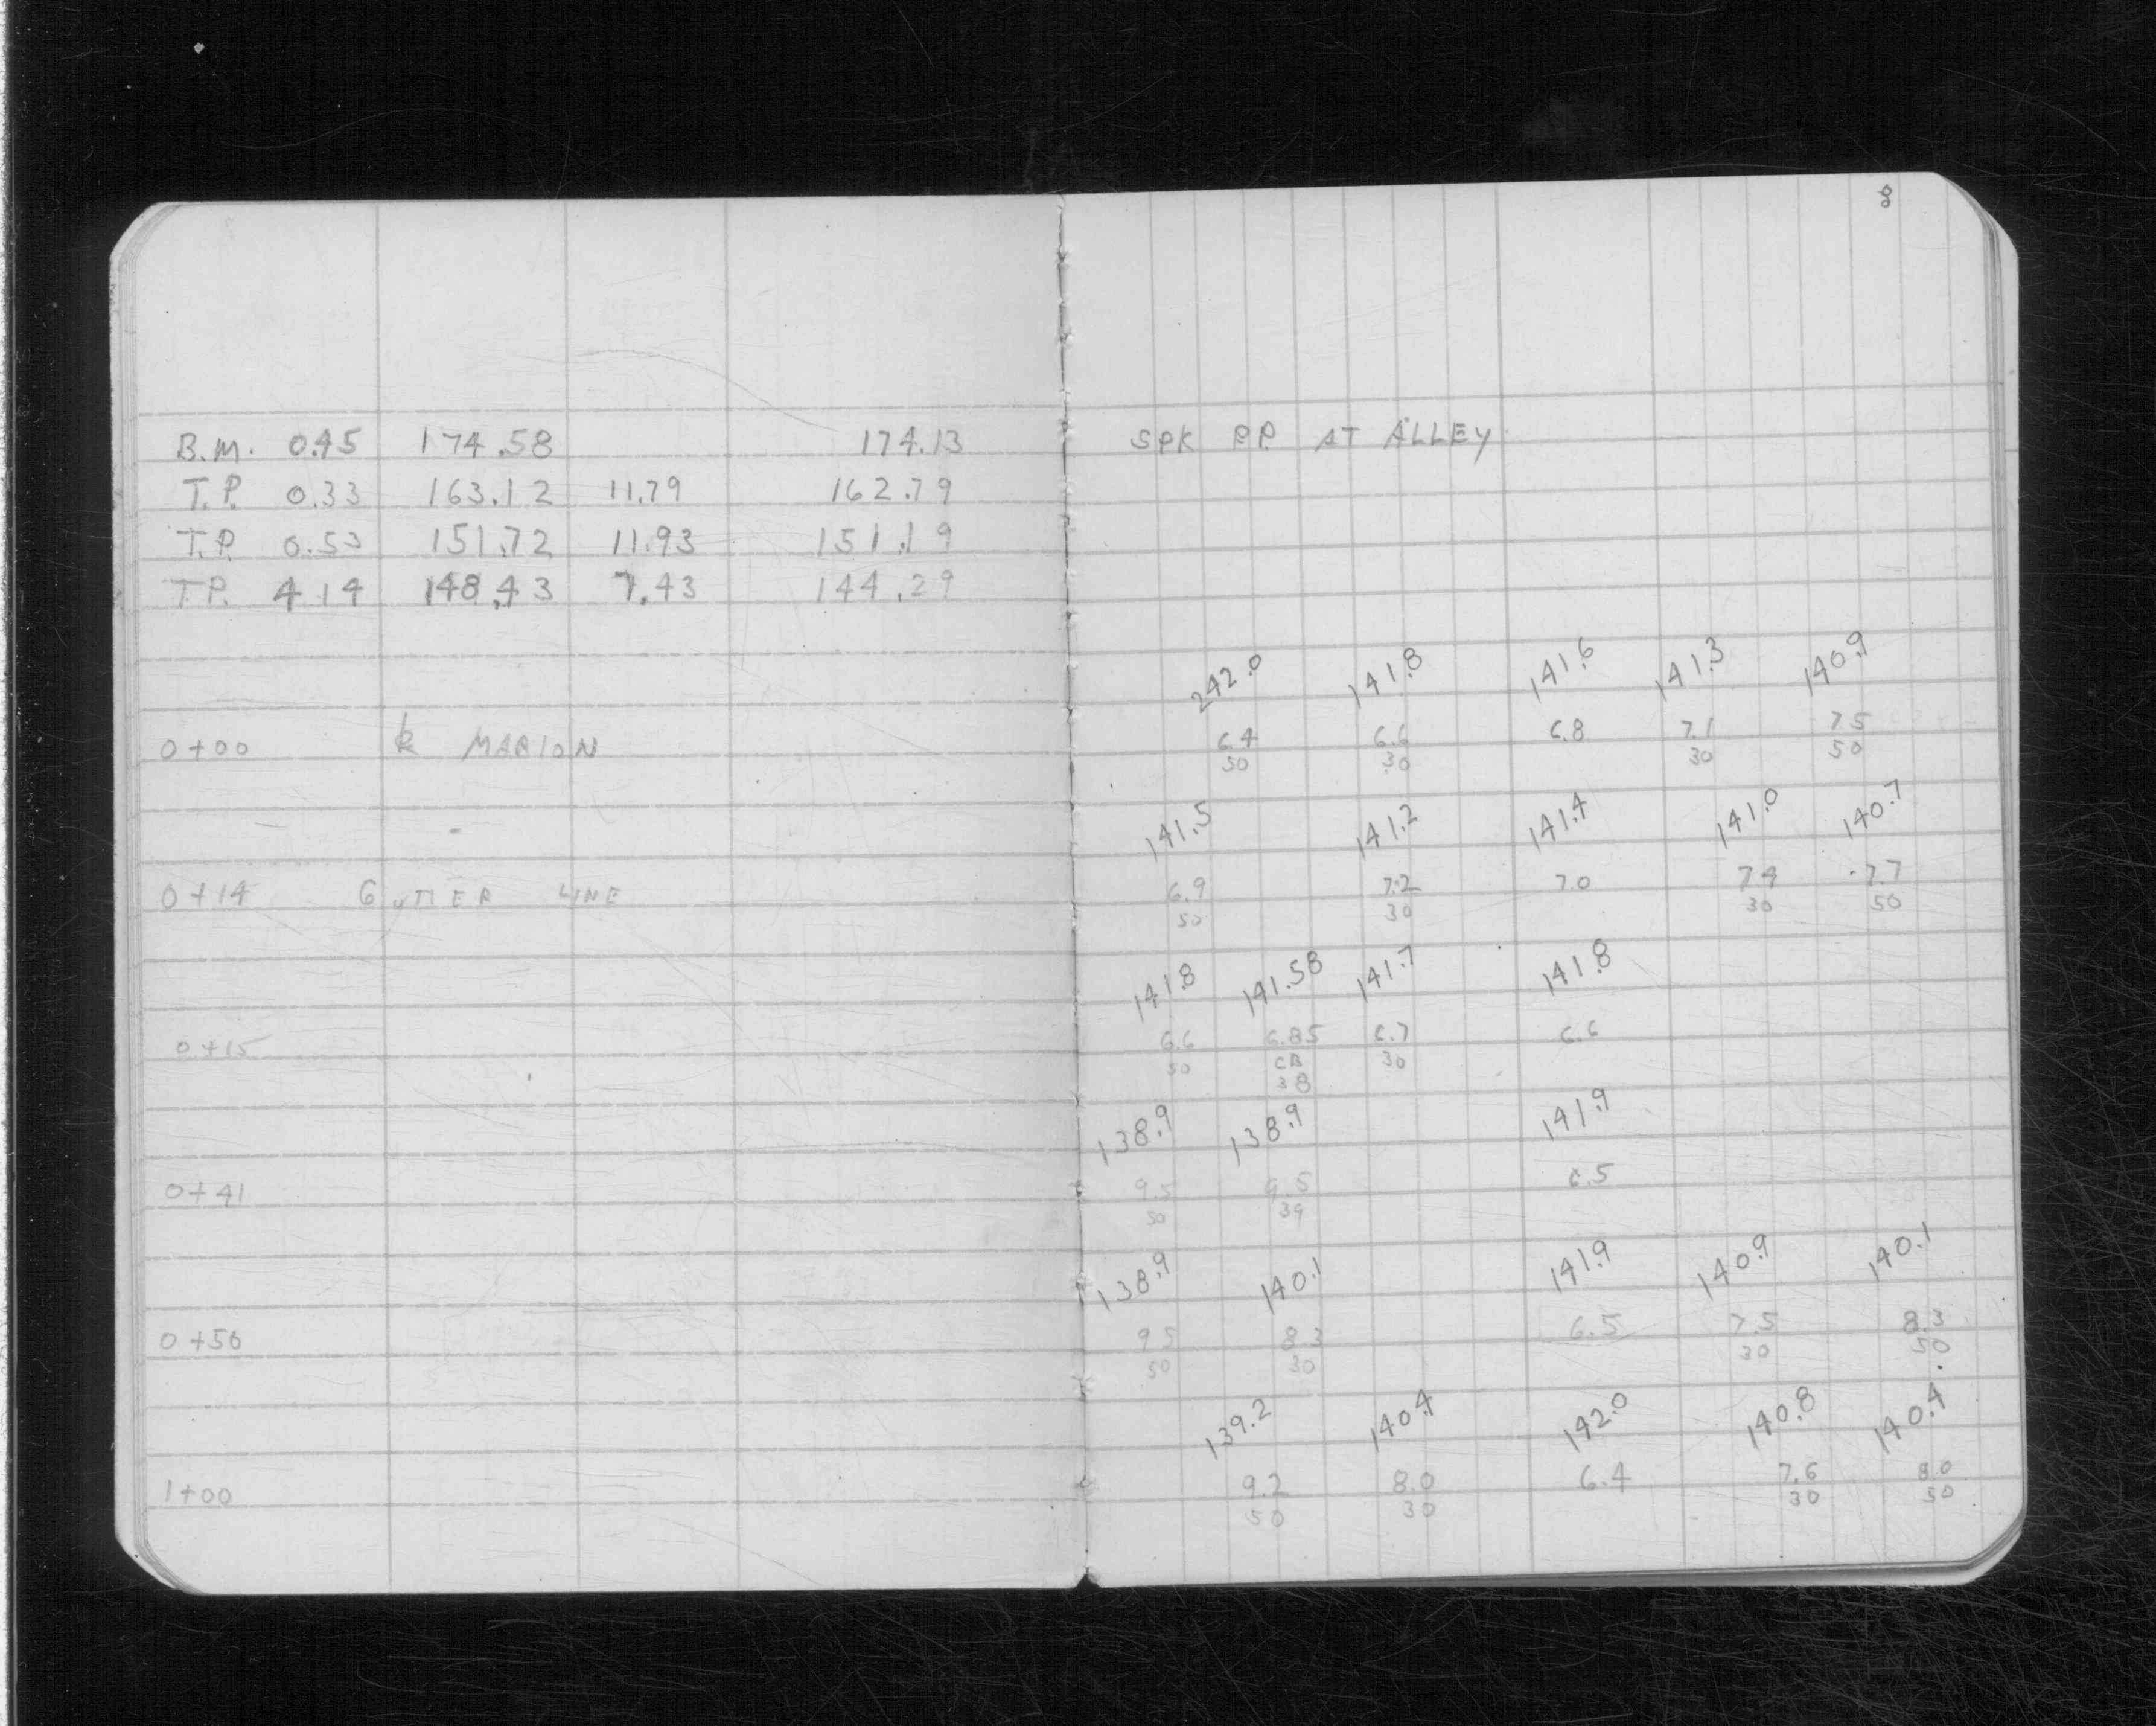 8
B.M. 0.45 174.58 174.13 SPK P.P. AT ALLEY
T.P. 0.33 163.12 11.79 162.79
T.P. 0.53 151.72 11.93 151.19
T.P. 4.14 148.43 7.43 144.29
242.0 141.8 141.6 141.3 140.9
0+00 MARION 6.4 6.6 6.8 7.1 7.5
50 30 30 50
141.5 141.2 141.4 141.0 140.7
0+14 GUTTER LINE 6.9 7.2 7.0 7.4 7.7
50 30 30 50
141.8 141.58 141.7 141.8
0+15 6.6 6.85 6.7 6.6
50 CB 30
38
138.9 138.9 141.9
0+41 9.5 9.5 6.5
50 39
138.9 140.1 141.9 140.9 140.1
0+50 9.5 8.3 6.5 7.5 8.3
50 30 30 50
139.2 140.4 142.0 140.8 140.4
1+00 9.2 8.0 6.4 7.6 8.0
50 30 30 50